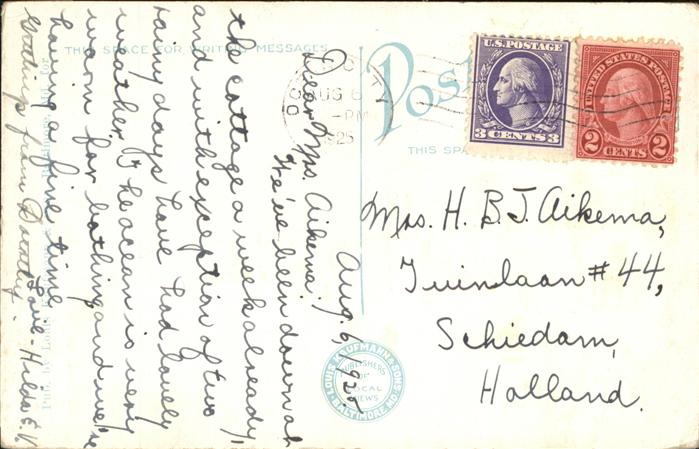 THIS SPACE FOR WRITING MESSAGES
Post
THIS SPA
CITY
AUG 6
-PM
1925
U.S. POSTAGE
3 CENTS 3
UNITED STATES POSTAGE
2 CENTS 2
Aug. 6, 1925.
Dear Mrs. Aikema:
We've been down at
the cottage a week already,
and with exception of two
rainy days have had lovely
weather. The ocean is very
warm for bathing and we're
having a fine time.
Love - Hilda E. V.
Greetings from Dorothy.
Mrs. H. B. J. Aikema,
Tuinlaan # 44,
Schiedam,
Holland.
LOUIS KAUFMANN & SONS
PUBLISHERS
OF
LOCAL
VIEWS
BALTIMORE, MD.
Pub. by Louis